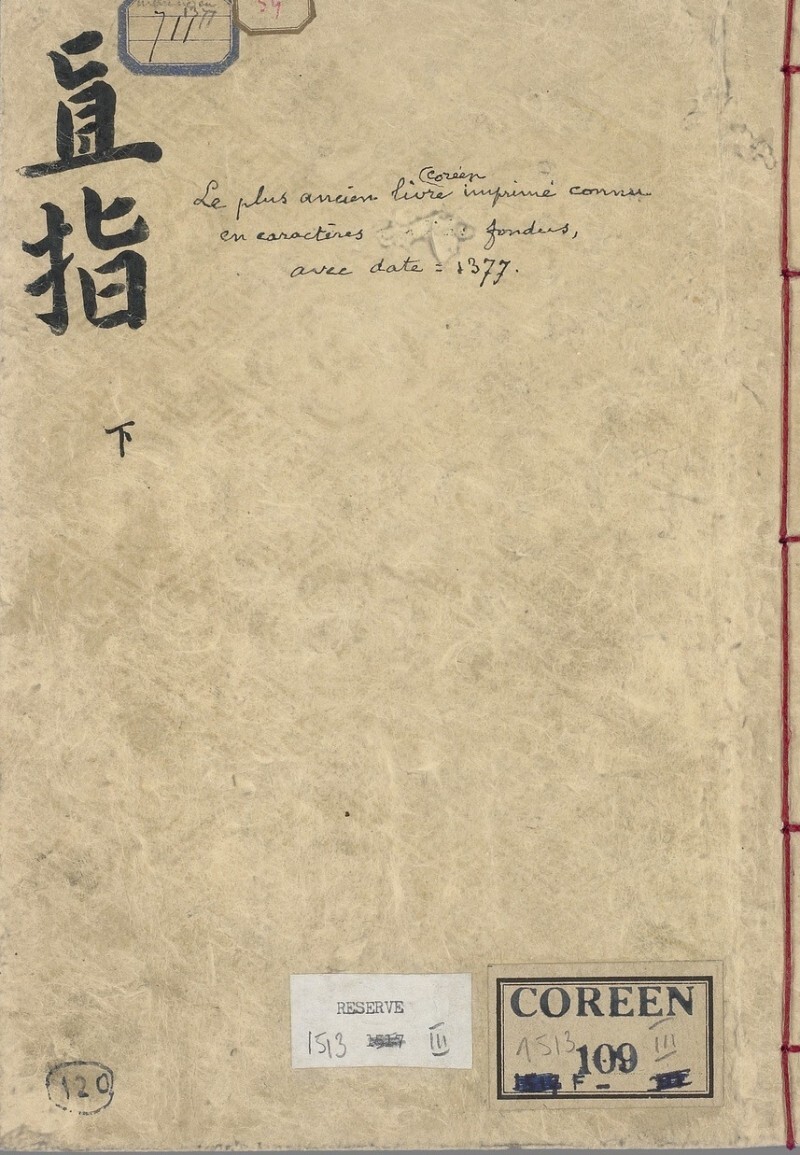 711
直指
下
Coréen
Le plus ancien livre imprimé connu
en caractères fondus,
avec date = 1377.
RESERVE
1513 III
COREEN
1513 109 III
F -
120